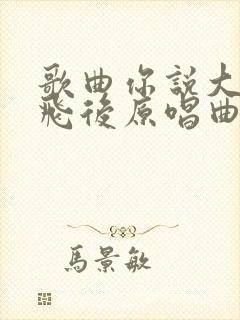 歌曲你説大
飛後原唱曲
馬景敏